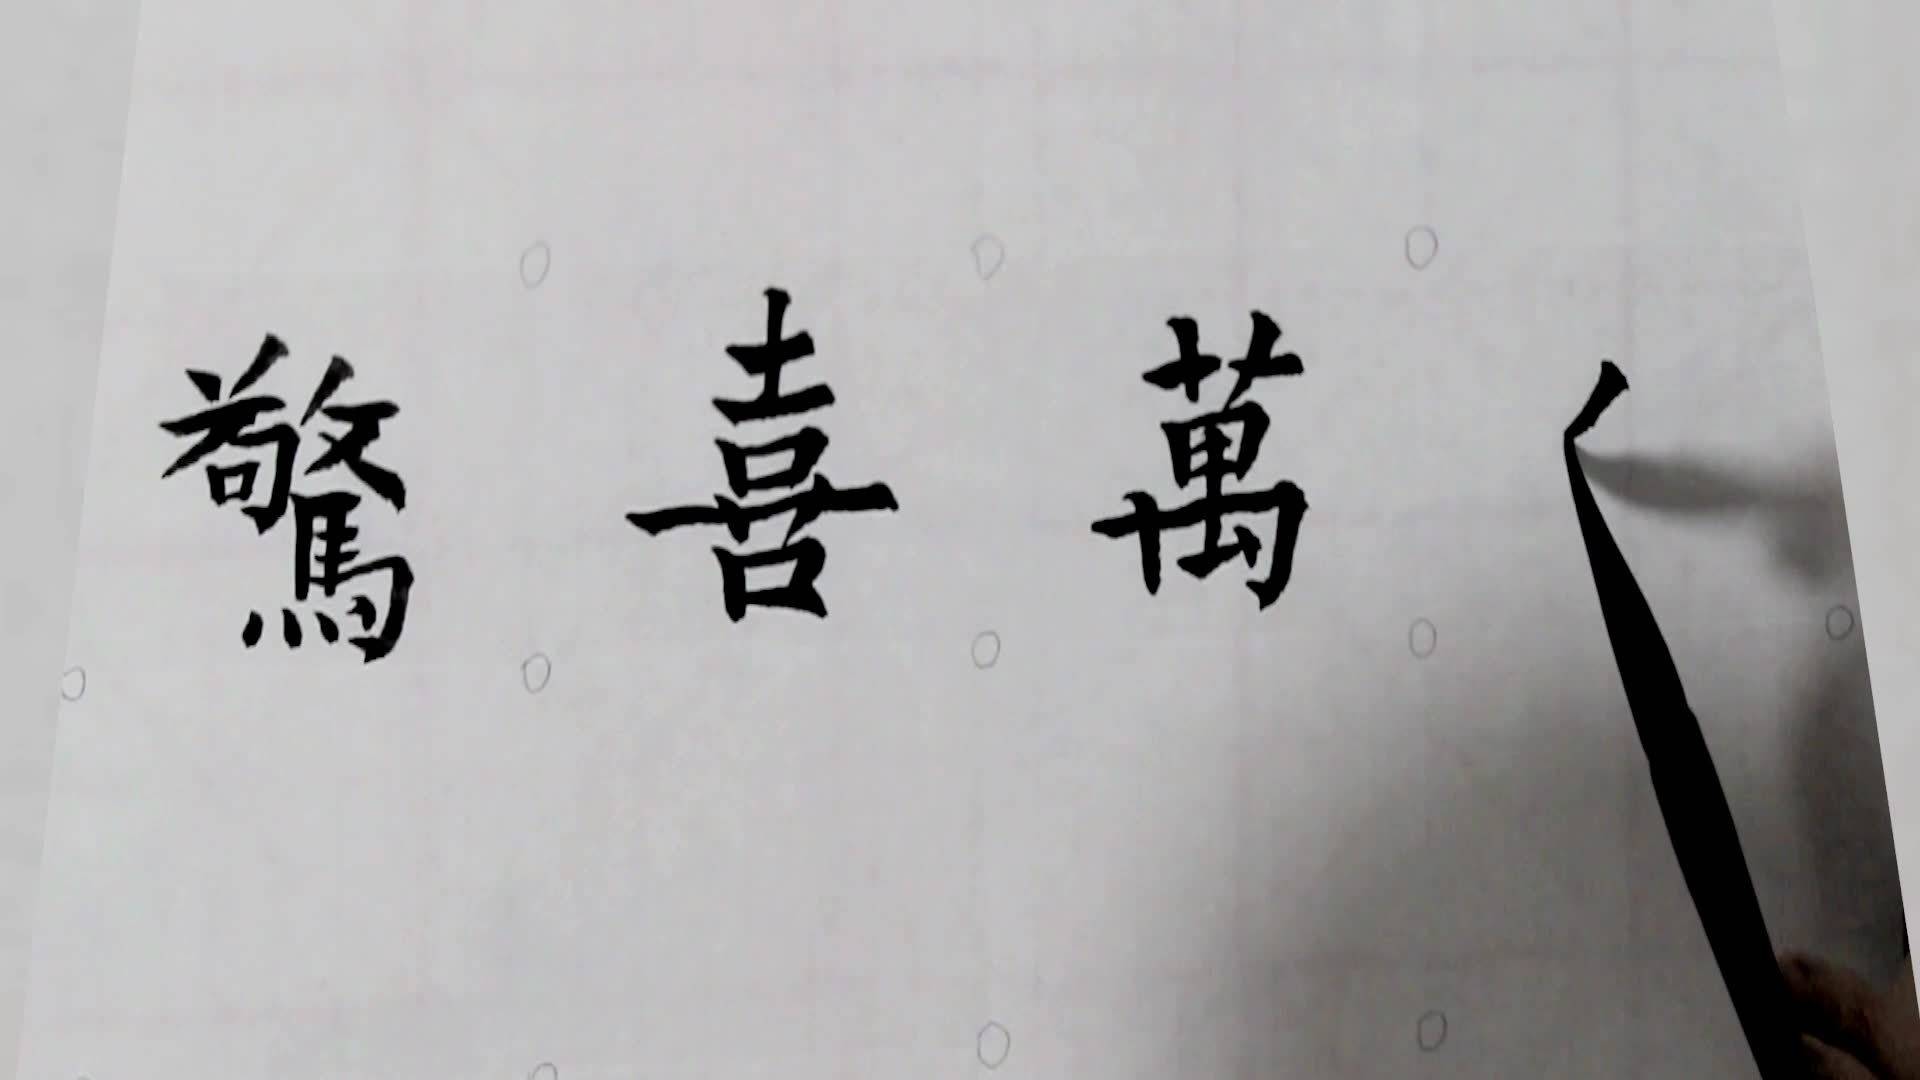 驚喜萬